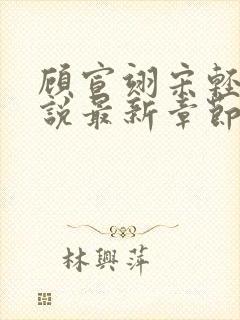 顾宣翊宋轻
說最新章節
林興萍